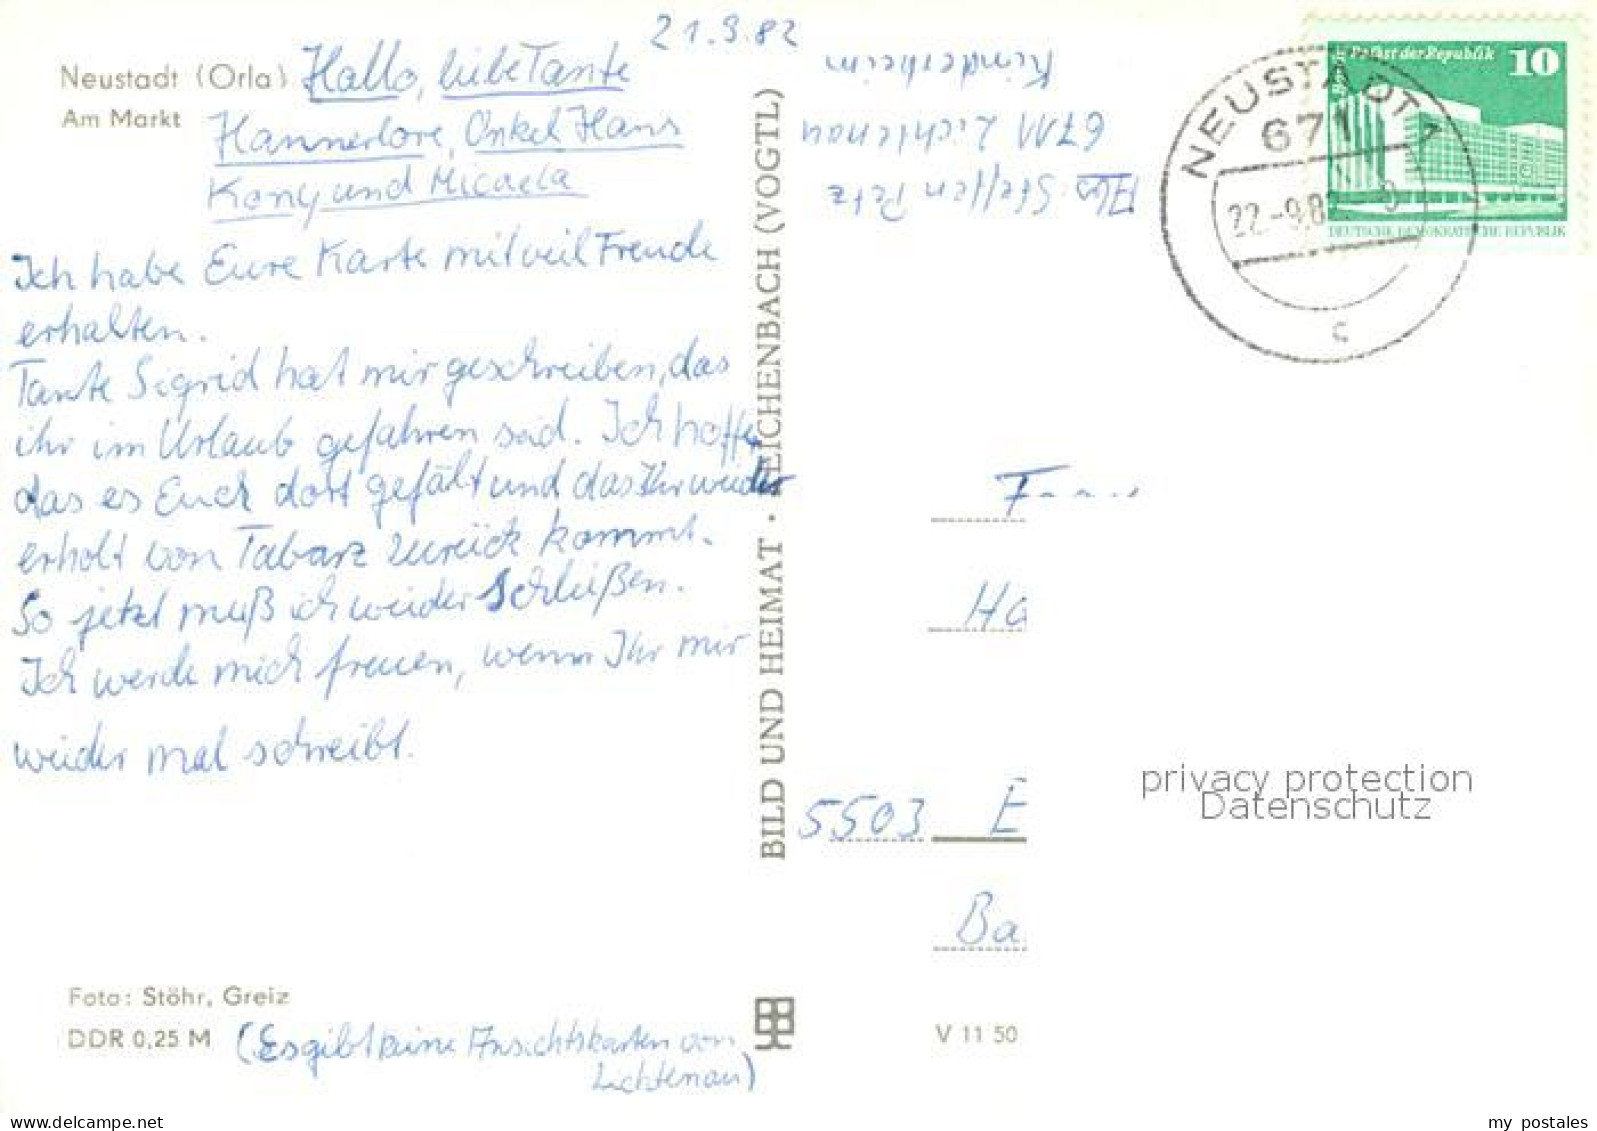 21.9.82
Neustadt (Orla)
Am Markt
Hallo, liebe Tante
Hannerlore, Onkel Hans
Kony und Micaela
Ich habe Eure Karte mit veil Freude
erhalten.
Tante Sigrid hat mir geschreiben, das
ihr im Urlaub gefahren seid. Ich hoffe
das es Euch dort gefält und das Ihr weider
erholt von Tabarz zurück kommt.
So jetzt muß ich weider schleißen.
Ich werde mich freuen, wenn Ihr mir
weider mal schreibt.
Foto: Stöhr, Greiz
DDR 0,25 M
(Es gibt keine Ansichtskarten von
Lichtenau)
BILD UND HEIMAT · REICHENBACH (VOGTL)
Abs: Steffen Petz
6711 Lichtenau
Kinderheim
NEUSTADT 1
671
22.-9.82
c
Palast der Republik
10
DEUTSCHE DEMOKRATISCHE REPUBLIK
Ha
5503 E
Ba
V 11 50
privacy protection
Datenschutz
www.delcampe.net
my_postales